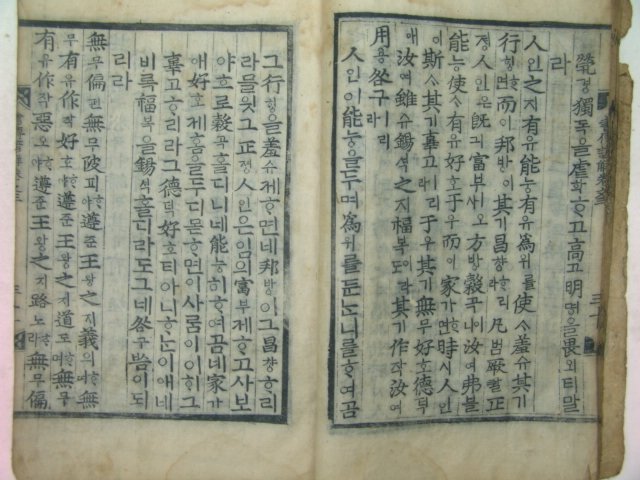 煢경獨독을虐학ᄒᆞ고高고明명을畏외티말
라
人인之지有유能능有유爲위를使ᄉᆞ羞슈其기
行ᄒᆡᆼ이면而이邦방이其기昌창ᄒᆞ리라凡범厥궐正
졍人인은旣긔富부사오方방穀곡이니汝여弗블
能능使ᄉᆞ有유好호于우而이家가ᄒᆞ면時시人인
이斯ᄉᆞ其기辜고ㅣ리라于우其기無무好호德덕
애汝여雖슈錫셕之지福복이라도其기作작汝여
用용咎구ㅣ리라
人인이能능을두며爲위를둔노니를ᄒᆞ여곰
그行ᄒᆡᆼ을羞슈케ᄒᆞ면네邦방이그昌챵ᄒᆞ리
라믈읫그正졍人인은임의富부케ᄒᆞ고사보
야ᄒᆞ로穀곡홀디니네能능히ᄒᆞ여곰네家가
애好호케홈을두디몯ᄒᆞ면이사ᄅᆞᆷ이이그
辜고ᄒᆞ리라그德덕好호티아니ᄒᆞᄂᆞᆫ이애네
비록福복을錫셕홀디라도그네咎구씀이되
리라
無무偏편無무陂피ᄒᆞ야遵쥰王왕之지義의ᄒᆞ며無
무有유作작好호ᄒᆞ야遵쥰王왕之지道도ᄒᆞ며無무
有유作작惡오ᄒᆞ야遵쥰王왕之지路로ᄒᆞ라無무偏